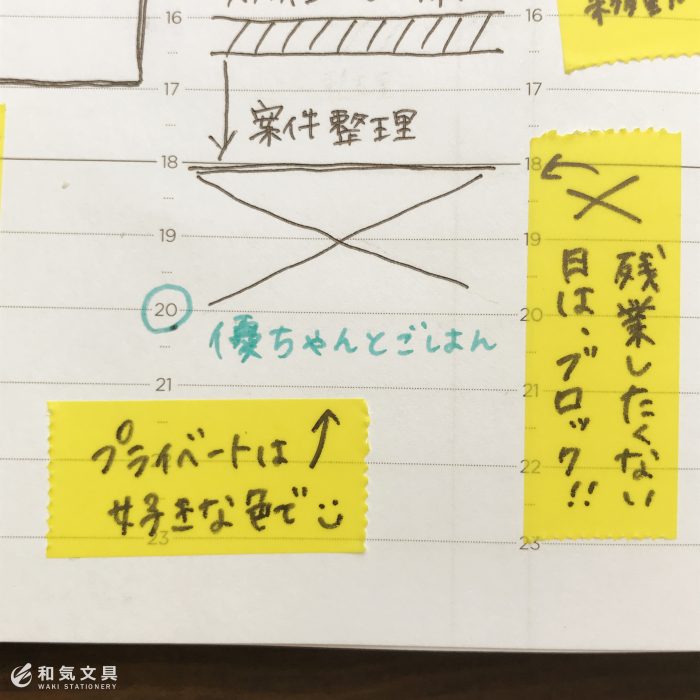 16
16
17
17
案件整理
18
18
19
19
20
20
優ちゃんとごはん
21
21
22
プライベートは
好きな色で
23
23
残業したくない
日は、ブロック!!
和気文具
WAKI STATIONERY